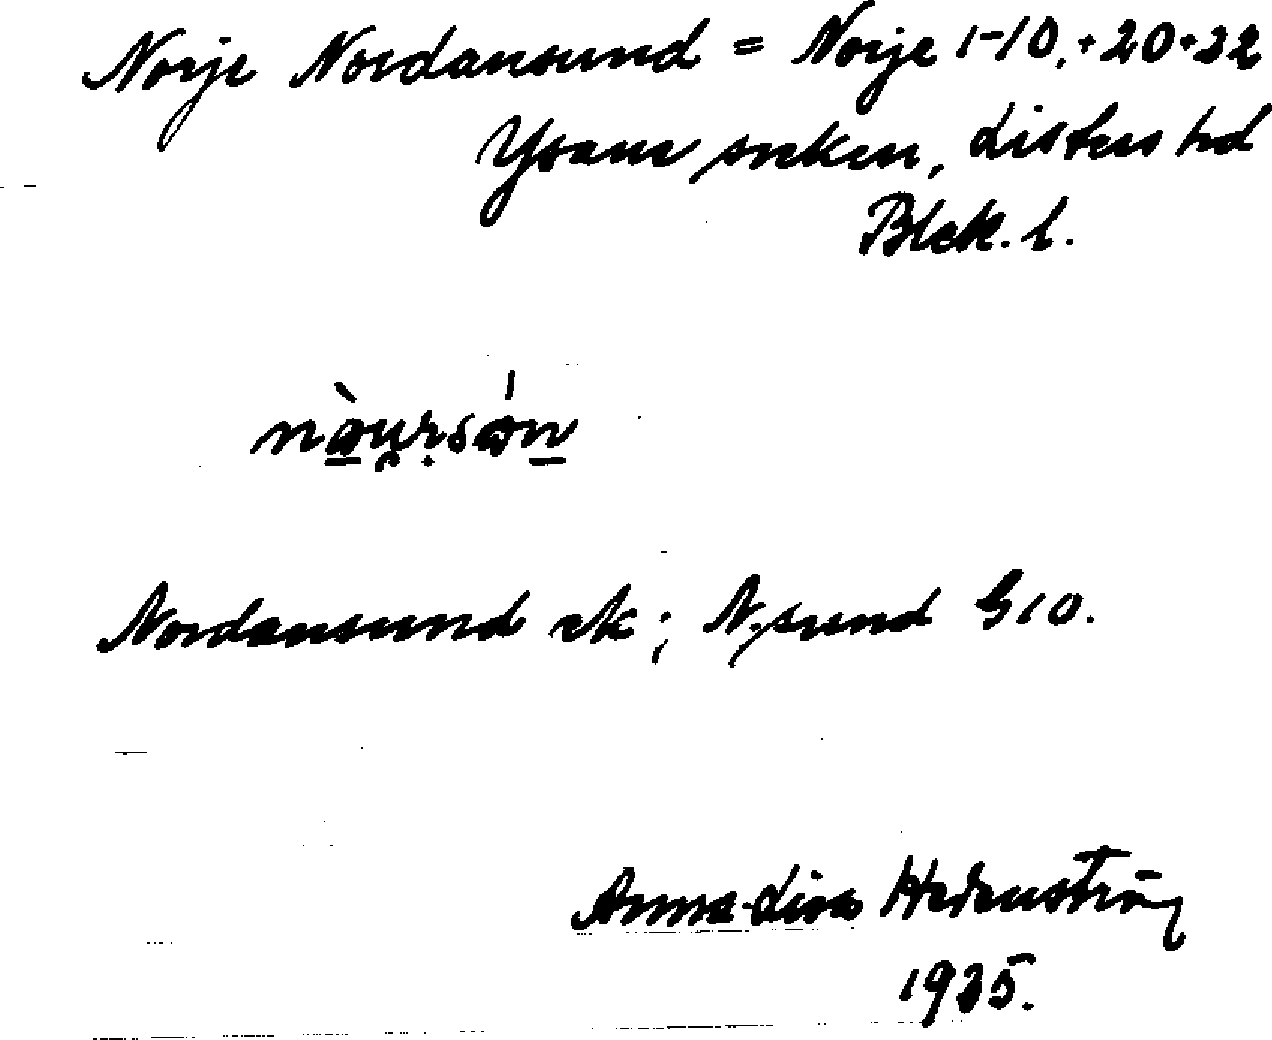 Norje Nordansund = Norje 1-10, + 20 + 22
Ysane socken, Listers hd
Blek. l.
nòu̯r̥són
Nordansund ek; N. sund G10.
Anna-Lisa Hedenström
1935.